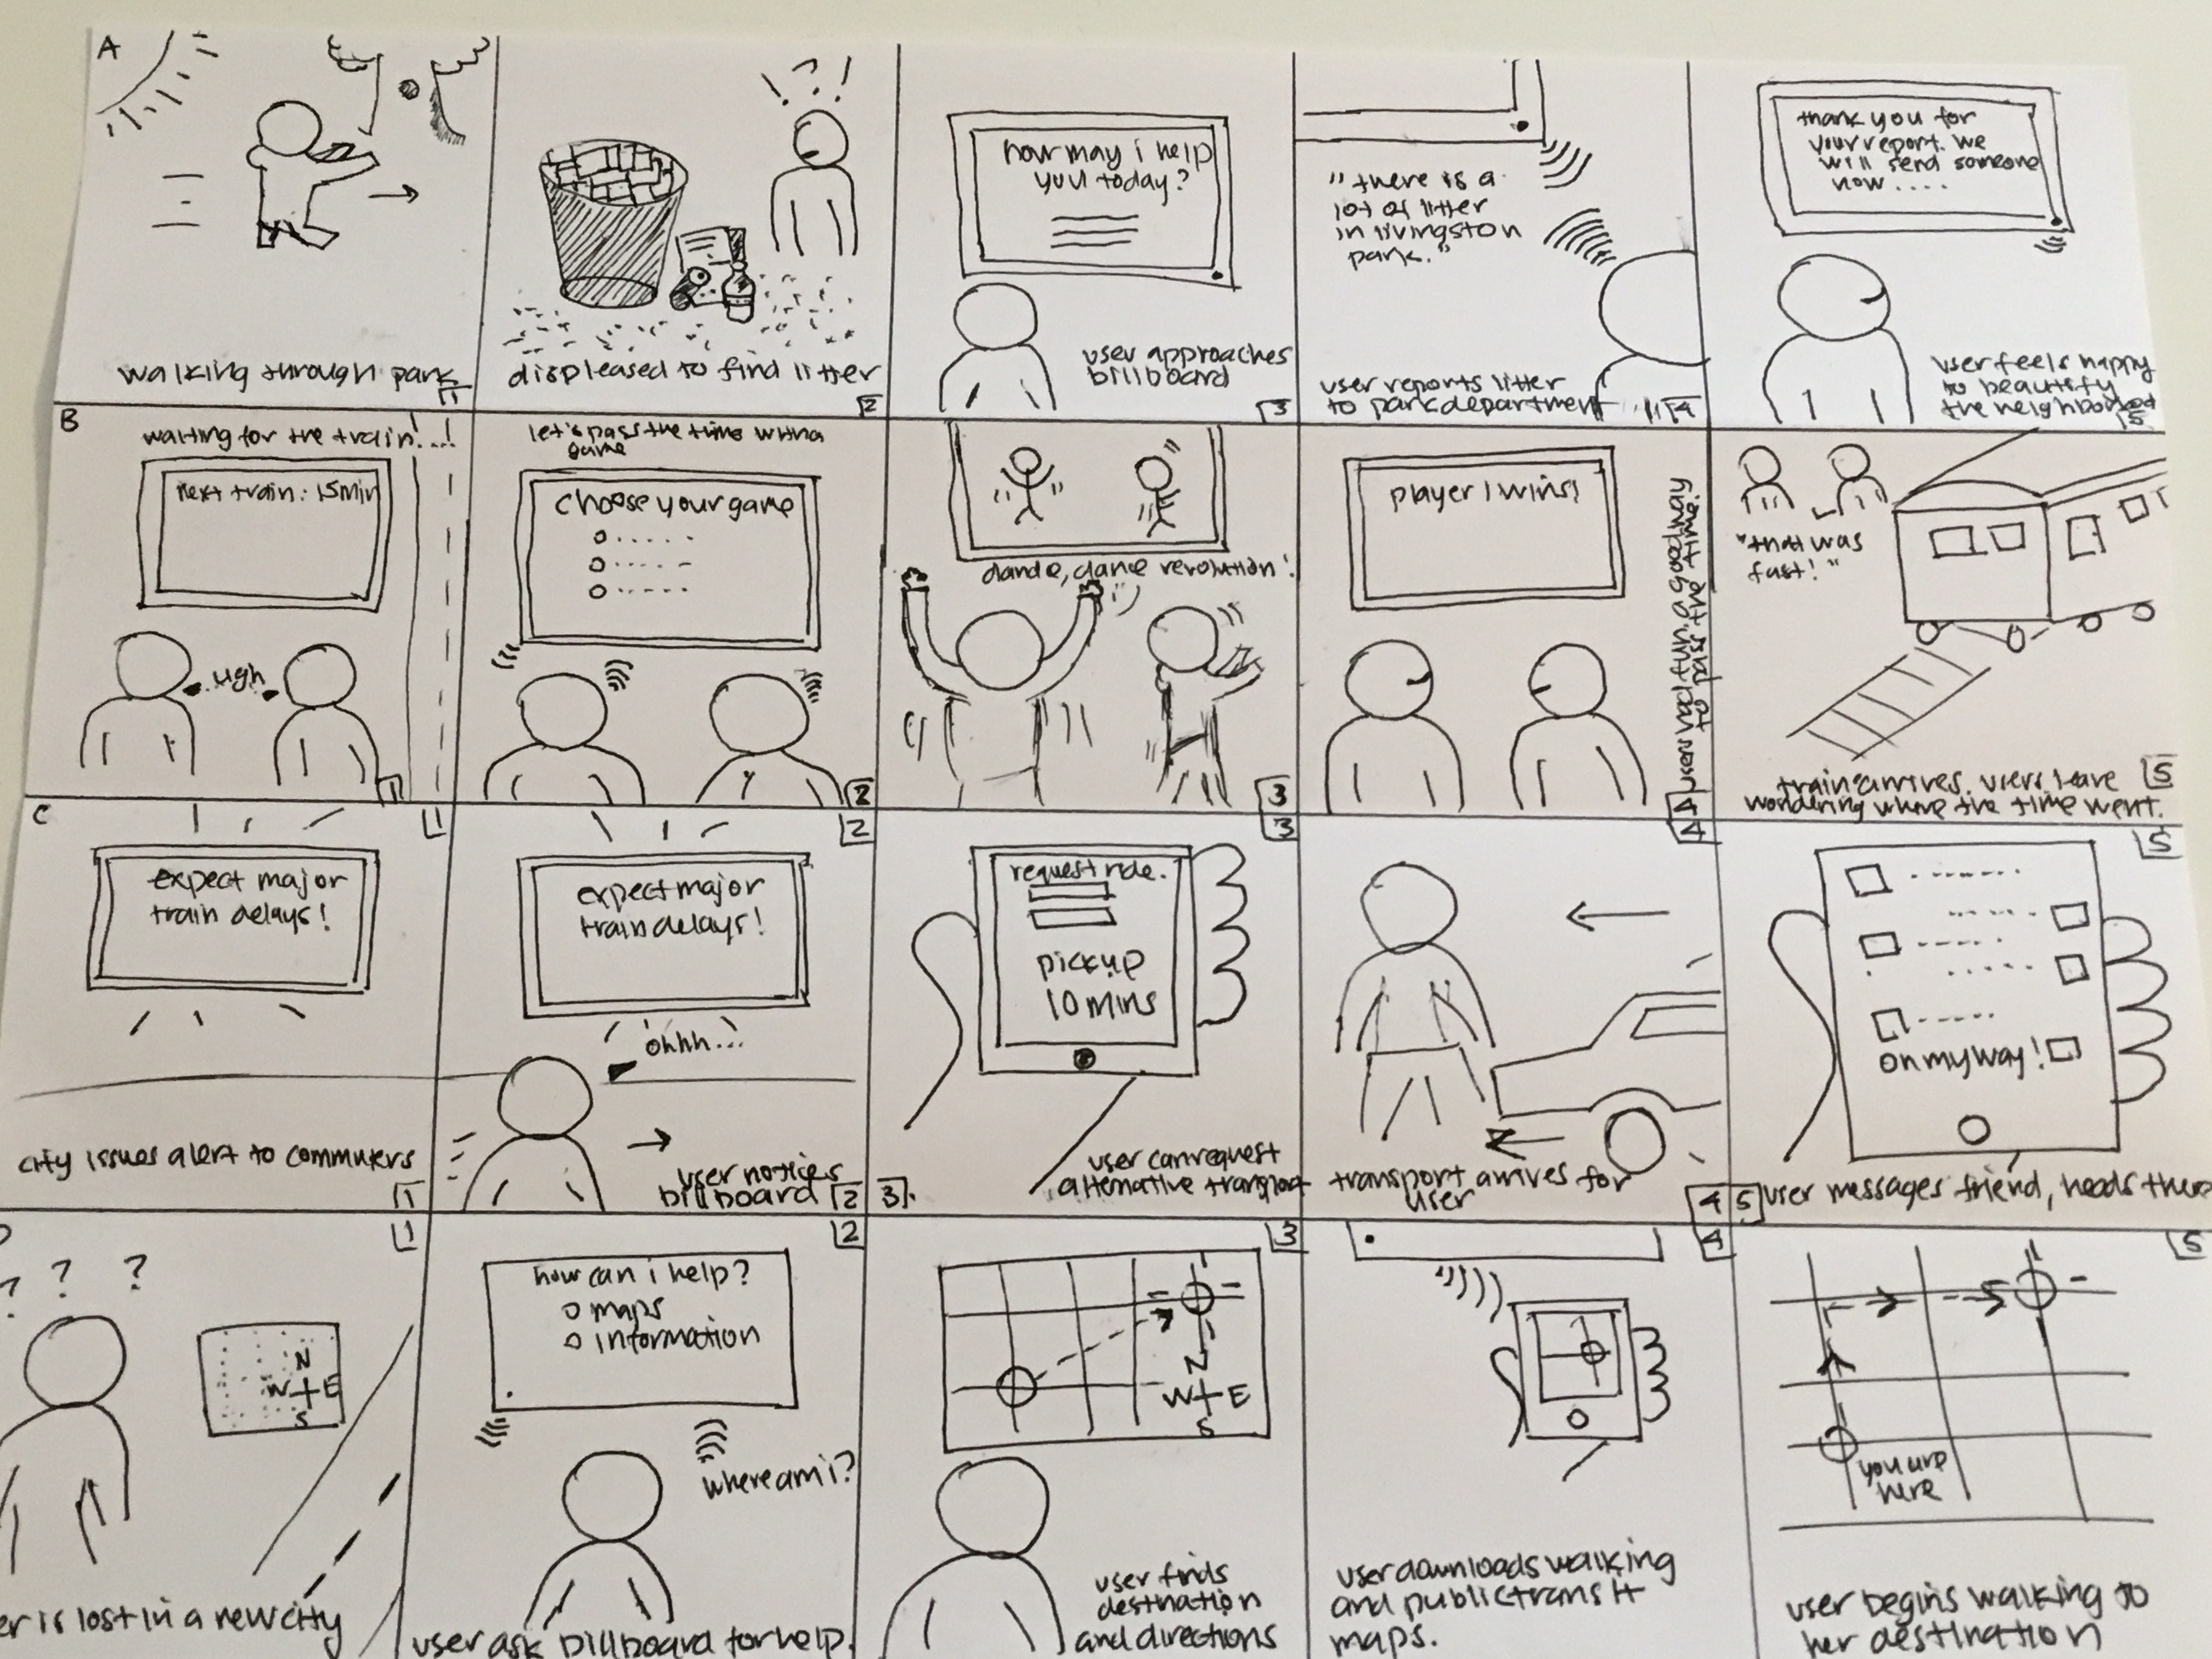 A
walking through park
1
! ? !
displeased to find litter
2
how may i help
you today?
user approaches
billboard
3
"there is a
lot of litter
in livingston
park."
user reports litter
to park department
4
thank you for
your report. we
will send someone
now ....
user feels happy
to beautify
the neighborhood
5
B
waiting for the train!...!
next train: 15min
ugh
1
let's pass the time with a
game
choose your game
2
dance, dance revolution!
3
player 1 wins!
users had fun, a good way
to pass the time.
4
"that was
fast!"
train arrives. users leave
wondering where the time went.
5
C
1
expect major
train delays!
city issues alert to commuters
1
2
expect major
train delays!
ohhh...
user notices
billboard
2
3
request ride.
pickup
10 mins
user can request
alternative transport
3.
4
transport arrives for
user
4
5
on my way!
5
user messages friend, heads there
1
? ? ?
N
W E
S
er is lost in a new city
2
how can i help?
maps
information
where am i?
user ask billboard for help.
3
N
W E
S
user finds
destination
and directions
4
user downloads walking
and public transit
maps.
5
you are
here
user begins walking to
her destination